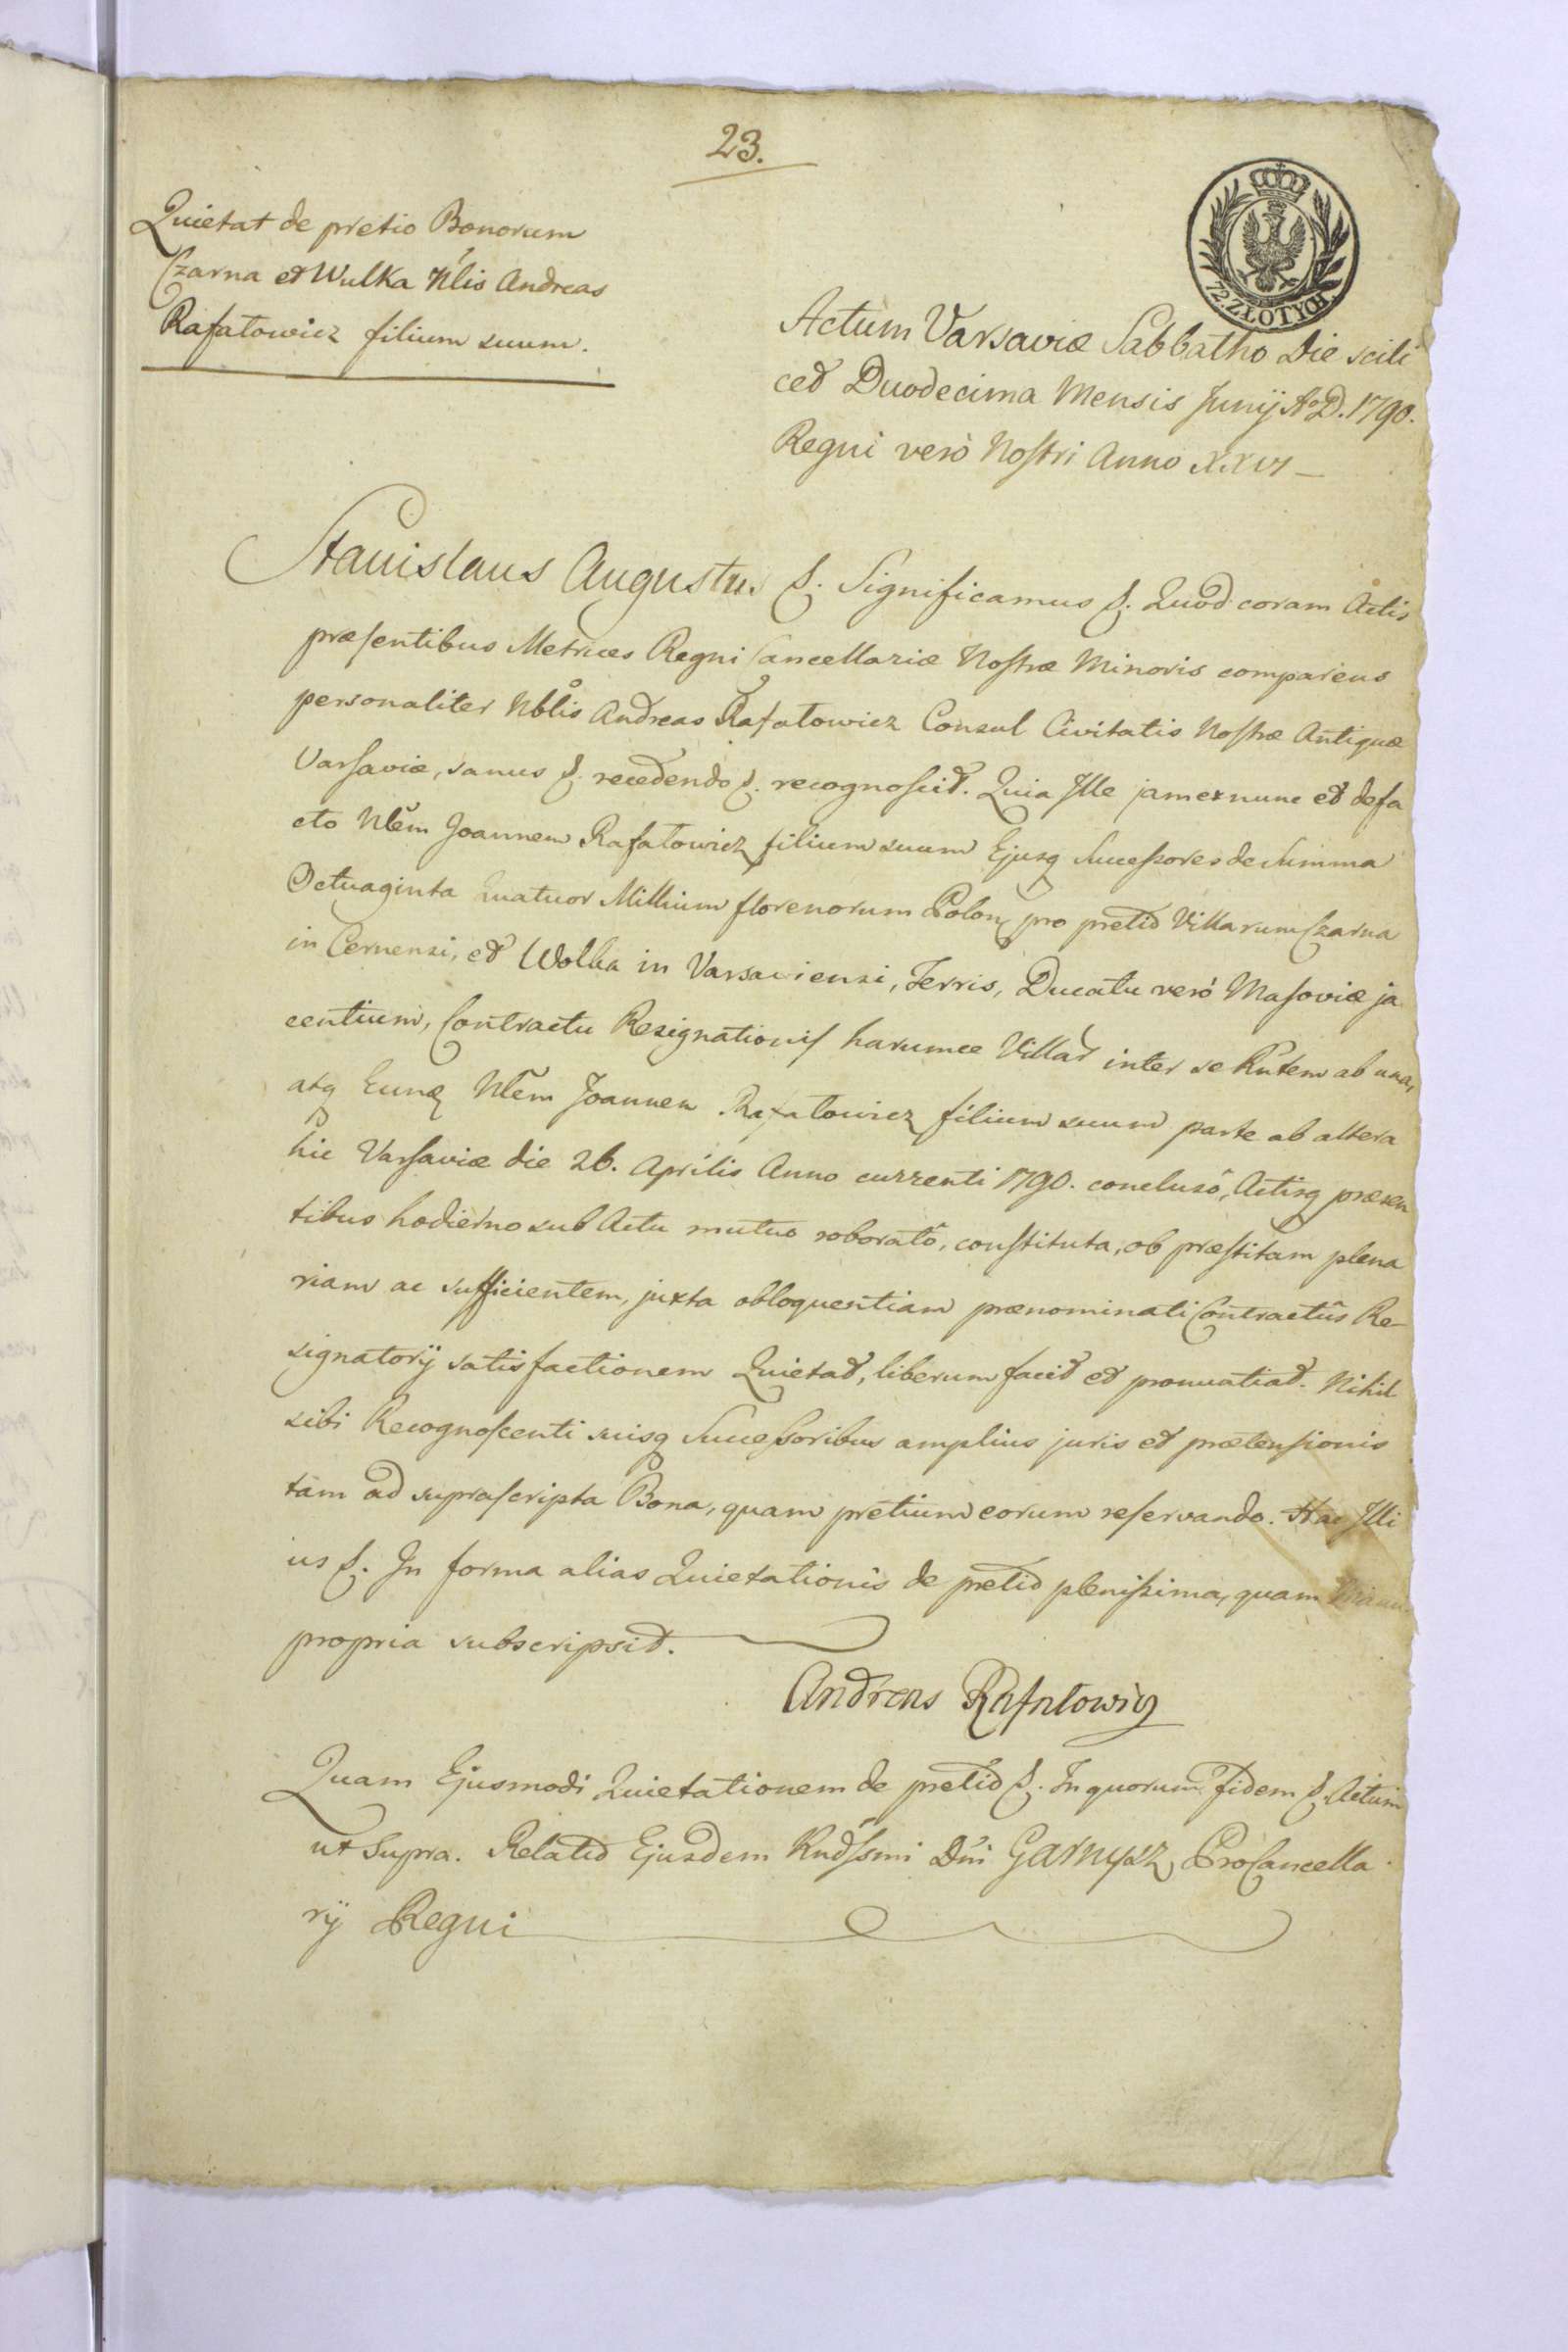 23.
Quietat de pretio Bonorum
Czarna et Wulka Nlis Andreas
Rafałowicz filium suum.
72. ZŁOTYCH.
Actum Varsaviæ Sabbatho Die scili
cet Duodecima Mensis Junij Ao D. 1790.
Regni verò Nostri Anno XXVI
Stanislaus Augustus &. Significamus &. Quod coram Actis
præsentibus Metrices Regni Cancellariæ Nostræ Minoris comparens
personaliter Nblis Andreas Rafałowicz Consul Civitatis Nostræ Antiquæ
Varsaviæ, sanus &. recedendo &. recognoscit. Quia Ille jam ex nunc et de fa
cto Nlem Joannem Rafałowicz filium suum Ejusq Successores de Summa
Octuaginta Quatuor Millium florenorum Polon pro pretio Villarum Czarna
in Cernensi, et Wolka in Varsaviensi, Terris, Ducatu verò Masoviæ ja
centium, Contractu Resignationis harumce Villar inter se Rntem ab una,
atq Eund Nlem Joannem Rafałowicz filium suum parte ab altera
hic Varsaviæ die 26. Aprilis Anno currenti 1790. conclusô, Actisq præsen
tibus hodierno sub Actu mutuo roboratô, constituta, ob præstitam plena
riam ac sufficientem, juxta obloquentiam prænominati Contractûs Re-
signatorij satisfactionem Quietat, liberum facit et pronuntiat. Nihil
sibi Recognoscenti suisq Successoribus amplius juris et prætensionis
tàm ad suprascripta Bona, quam pretium eorum reservando. Hac Illi
us &. In forma alias Quietationis de pretio plenissima, quam Manu
propria subscripsit.
Andreas Rafałowicz
Quam Ejusmodi Quietationem de pretio &. In quorum fidem &. Actum
ut Supra. Relatio Ejusdem Rndssmi Dni Garnysz ProCancella
rij Regni